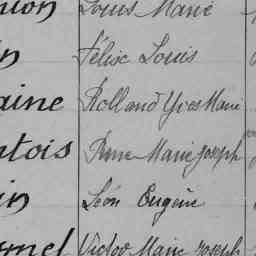 nion Louis Marie
in Félix Louis
aine Rolland Yves Marie
ntois Pierre Marie Joseph
in Léon Eugène
rnel Victor Marie Joseph